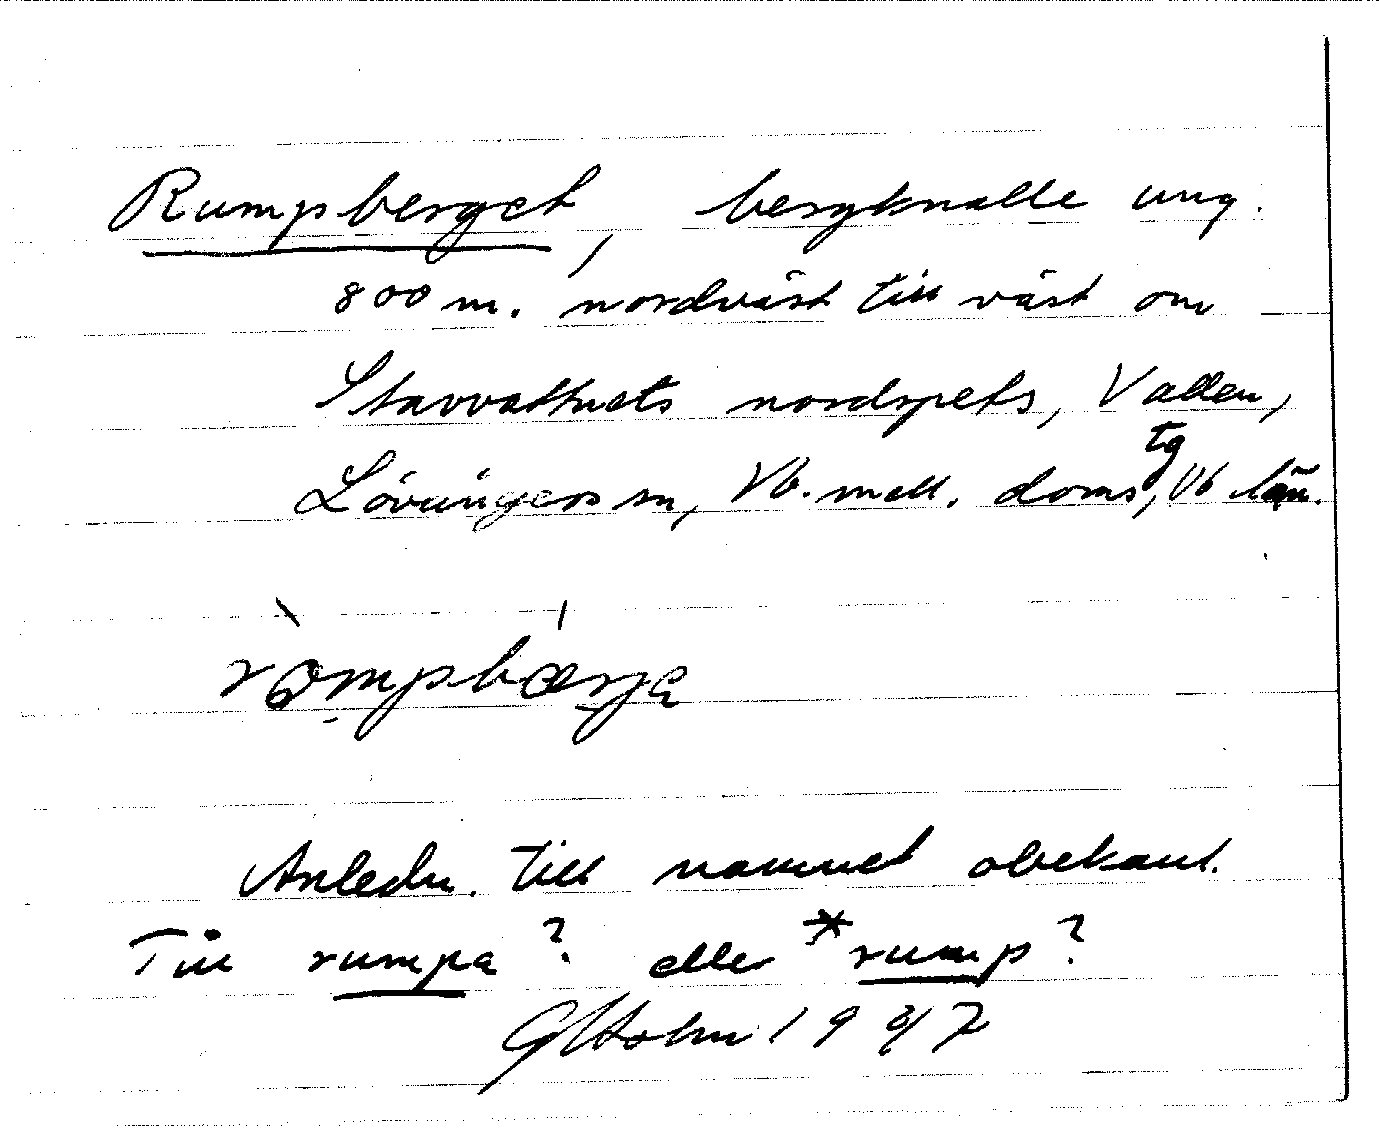 Rumpberget, bergknalle ung.
800 m. nordväst till väst om
Stavvattnets nordspets, Vallen,
Lövångers sn, Vb. mell. doms, tg Vb län.
ròmpbǽrjə
Anledn. till namnet obekant.
Till rumpa? eller *rump?
G Holm 1947